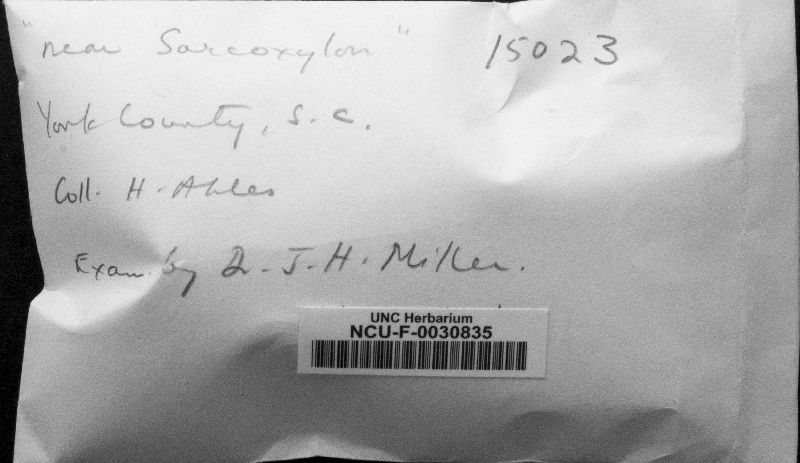 "near Sarcoxylon" 15023
York County, S.C.
Coll. H. Ahles
Exam. by J.H. Miller.
UNC Herbarium
NCU-F-0030835